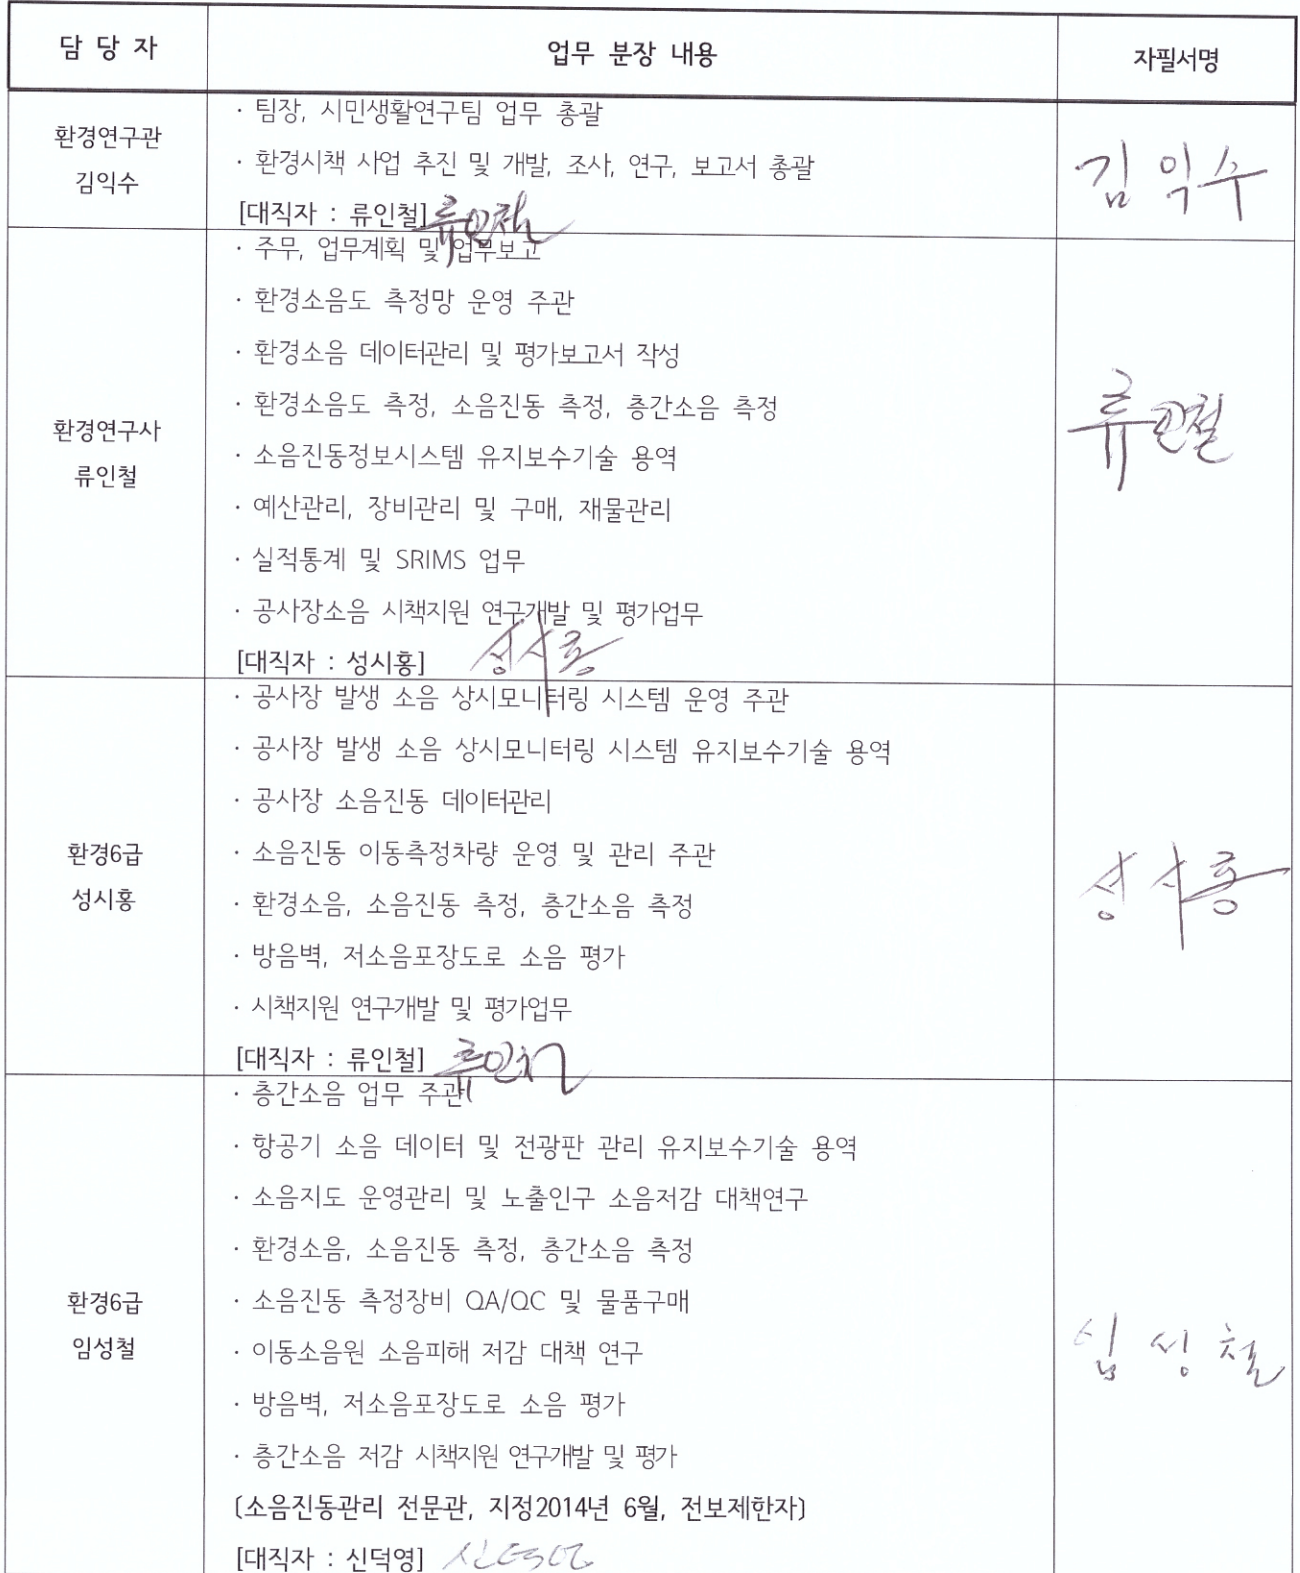 담 당 자
업무 분장 내용
자필서명
환경연구관
김익수
· 팀장, 시민생활연구팀 업무 총괄
· 환경시책 사업 추진 및 개발, 조사, 연구, 보고서 총괄
[대직자 : 류인철] 류인철
김익수
환경연구사
류인철
· 주무, 업무계획 및 업무보고
· 환경소음도 측정망 운영 주관
· 환경소음 데이터관리 및 평가보고서 작성
· 환경소음도 측정, 소음진동 측정, 층간소음 측정
· 소음진동정보시스템 유지보수기술 용역
· 예산관리, 장비관리 및 구매, 재물관리
· 실적통계 및 SRIMS 업무
· 공사장소음 시책지원 연구개발 및 평가업무
[대직자 : 성시홍] 성시홍
류인철
환경6급
성시홍
· 공사장 발생 소음 상시모니터링 시스템 운영 주관
· 공사장 발생 소음 상시모니터링 시스템 유지보수기술 용역
· 공사장 소음진동 데이터관리
· 소음진동 이동측정차량 운영 및 관리 주관
· 환경소음, 소음진동 측정, 층간소음 측정
· 방음벽, 저소음포장도로 소음 평가
· 시책지원 연구개발 및 평가업무
[대직자 : 류인철] 류인철
성시홍
환경6급
임성철
· 층간소음 업무 주관
· 항공기 소음 데이터 및 전광판 관리 유지보수기술 용역
· 소음지도 운영관리 및 노출인구 소음저감 대책연구
· 환경소음, 소음진동 측정, 층간소음 측정
· 소음진동 측정장비 QA/QC 및 물품구매
· 이동소음원 소음피해 저감 대책 연구
· 방음벽, 저소음포장도로 소음 평가
· 층간소음 저감 시책지원 연구개발 및 평가
〔소음진동관리 전문관, 지정2014년 6월, 전보제한자〕
[대직자 : 신덕영] 신덕영
임성철